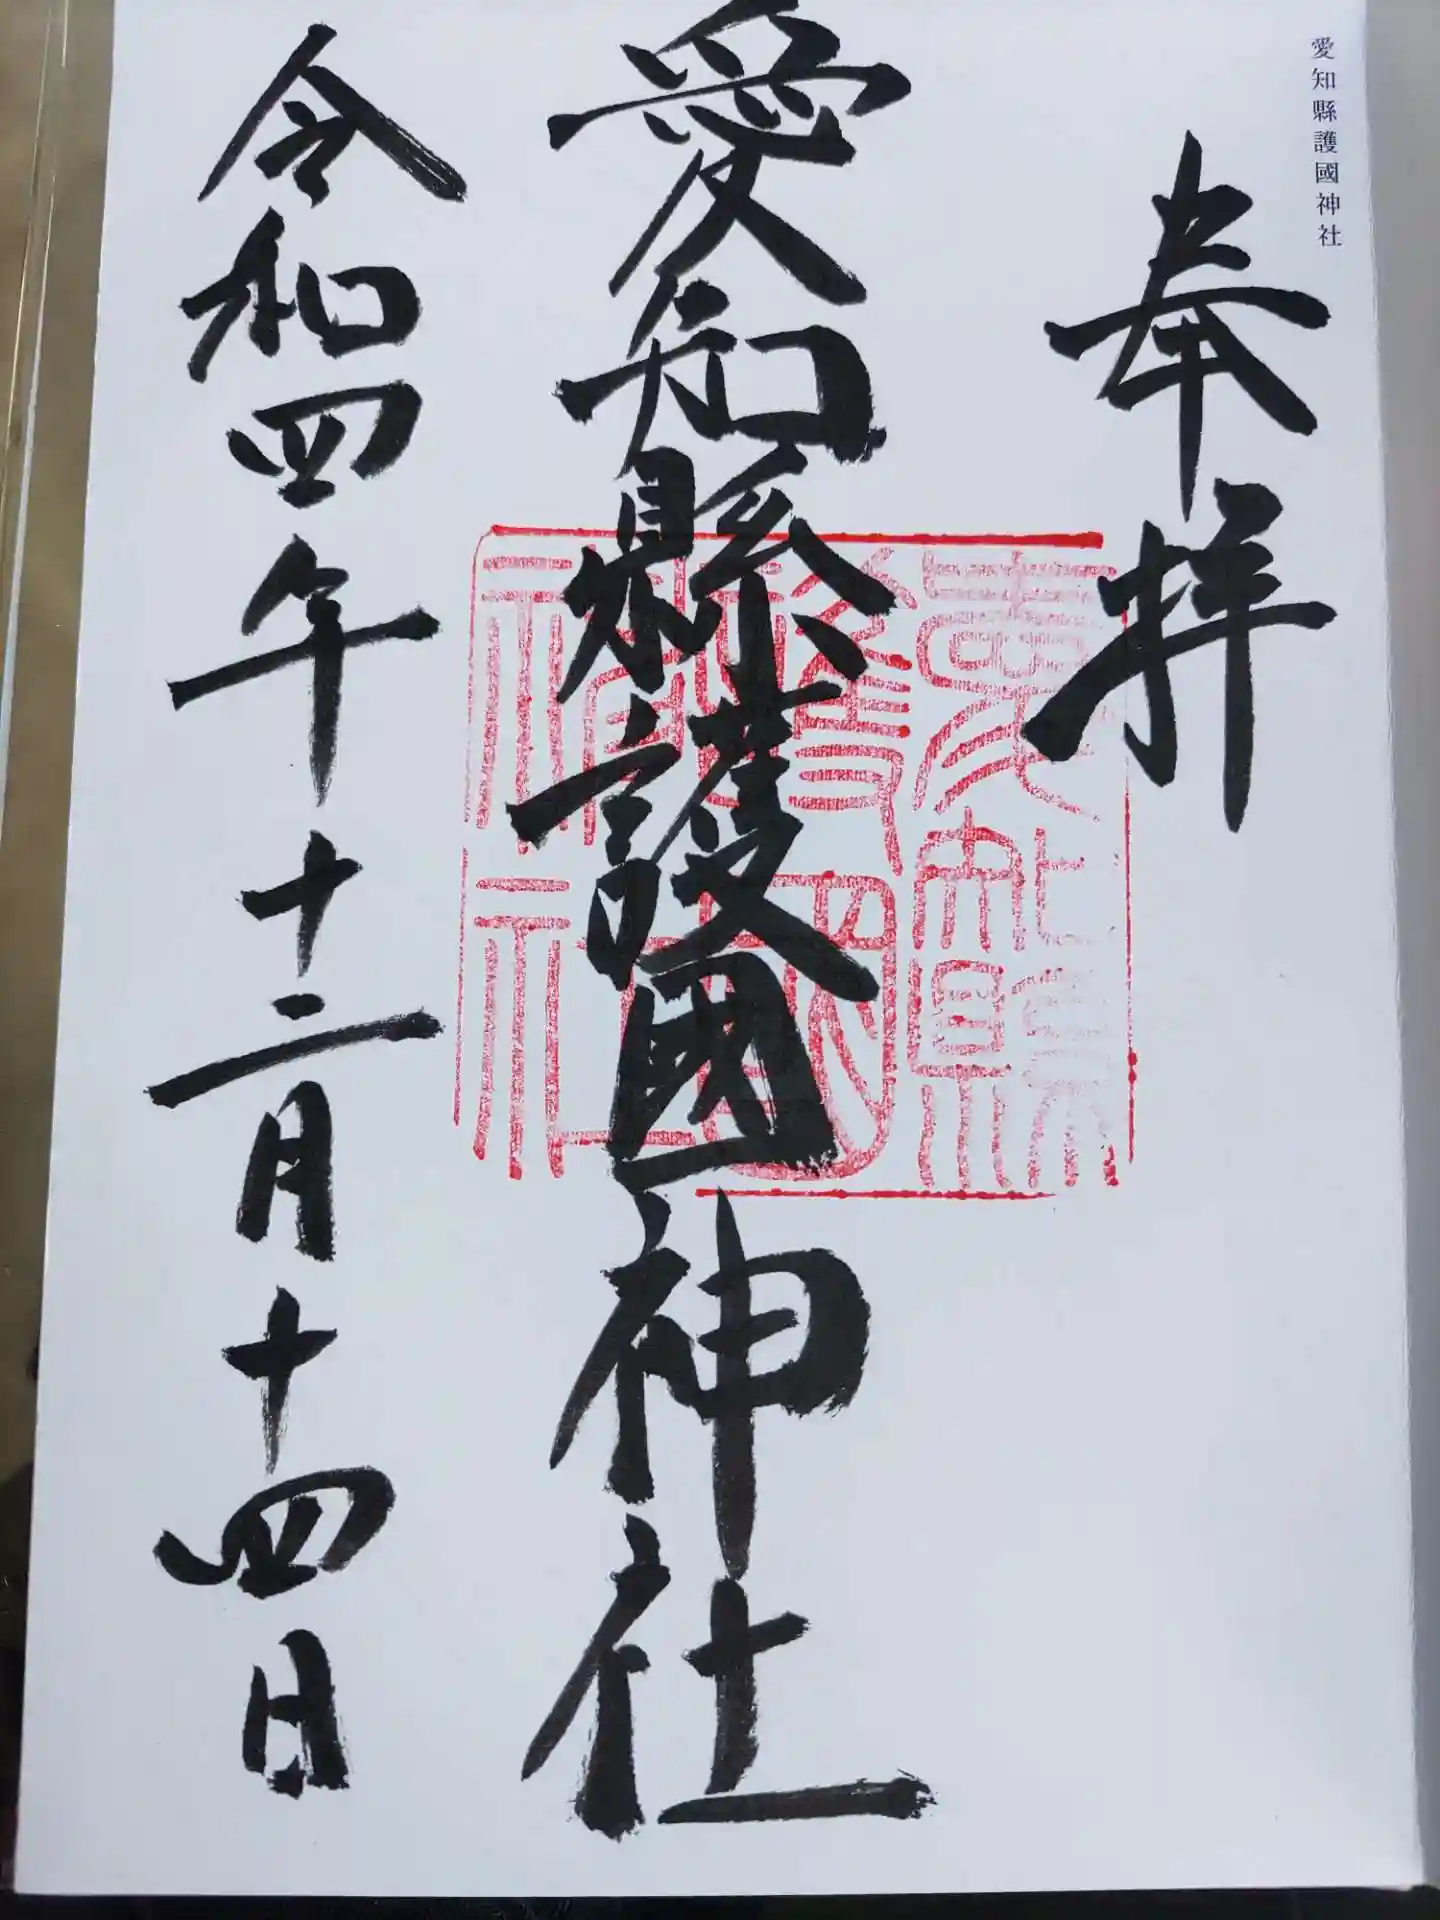 愛知縣護國神社
奉拝
愛知縣護國神社
令和四年十二月十四日
愛知縣
護國
神社